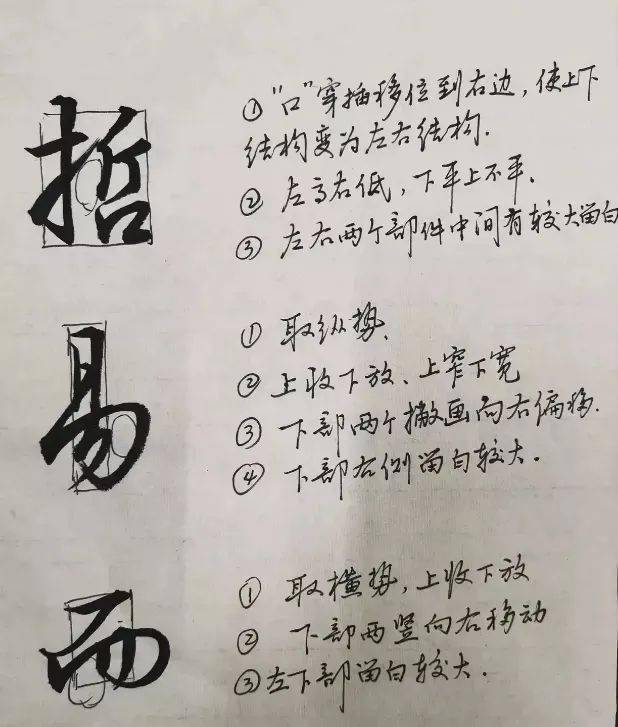 哲
①"口"穿插移位到右边,使上下
结构变为左右结构.
②左高右低,下平上不平.
③左右两个部件中间有较大留白
易
①取纵势、
②上收下放、上窄下宽
③下部两个撇画向右偏移.
④下部右侧留白较大.
而
①取横势,上收下放
②下部两竖向右移动
③左下部留白较大.